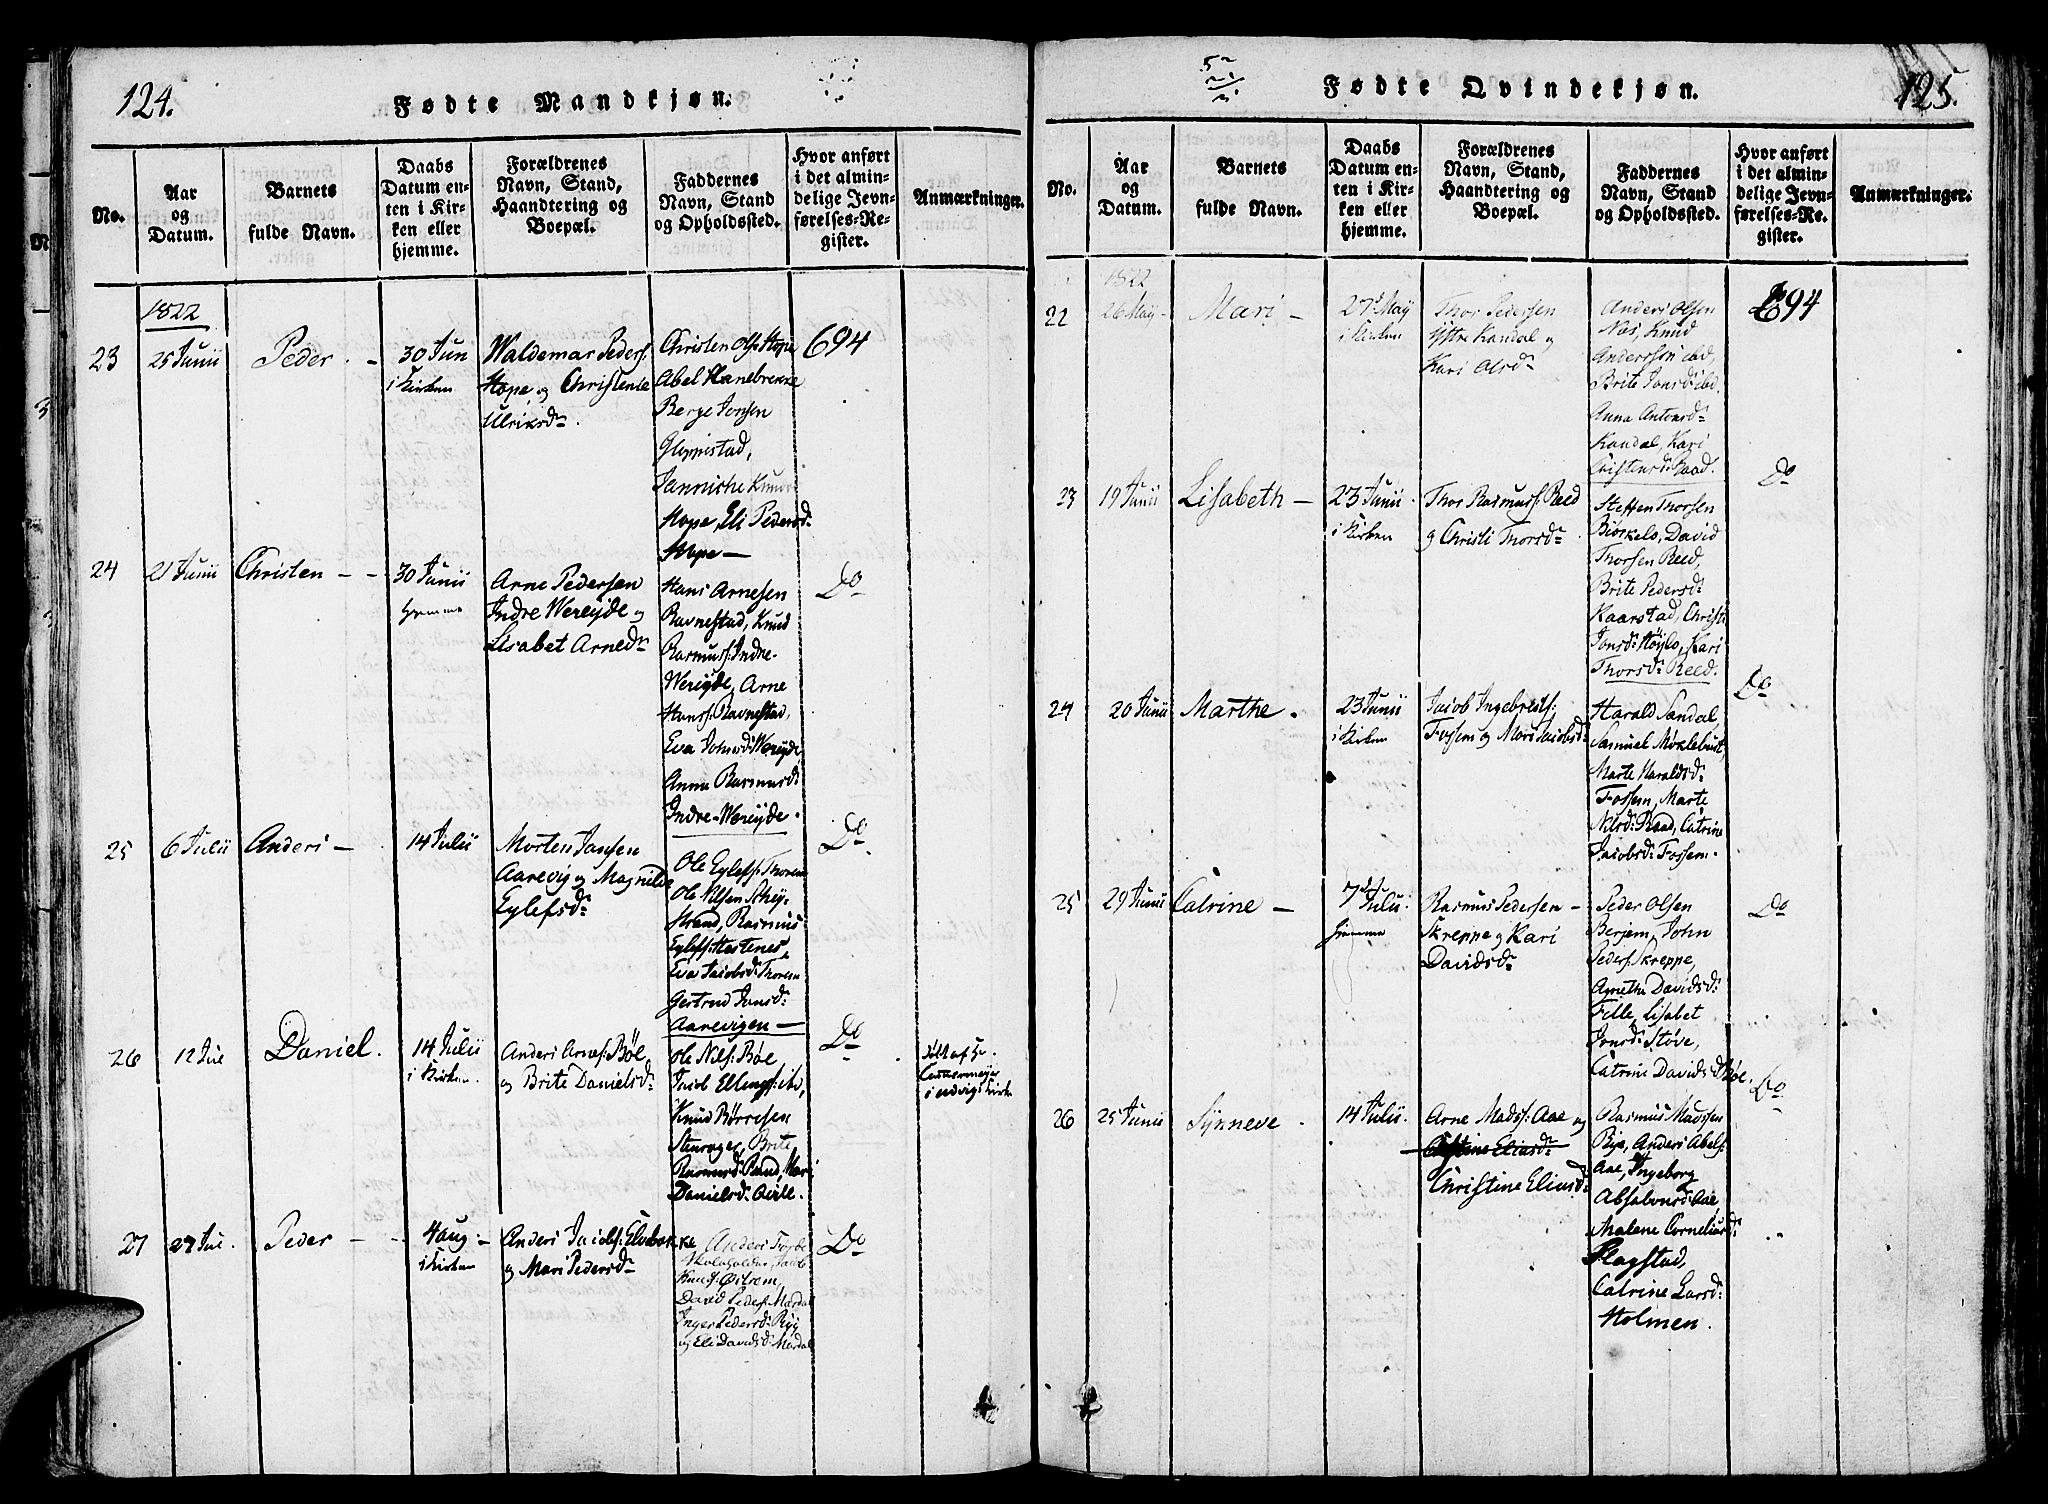 124.
Fødte Mandkjøn.
No.
Aar
og
Datum.
Barnets
fulde Navn.
Daabs
Datum en-
ten i Kir-
ken eller
hjemme.
Forældrenes
Navn, Stand,
Haandtering og
Boepæl.
Faddernes
Navn, Stand
og Opholdssted.
Hvor anført
i det almin-
delige Jevn-
førelses-Re-
gister.
Anmærkninger.
1822
23
25 Junii
Peder
30 Jun
i Kirken
Waldemar Peders:
Hope og Christense
Ulriksdr
Christen Ols: Hope
Abel Hanebrekke
Berge Jonsen
Gloppestad,
Jannicke Knuds
Hope, Eli Pedersdr
Hope
694
24
21 Junii
Christen
30 Junii
hjemme
Arne Pedersen
Indre Wereyde og
Lisabet Arnedr
Hans Arnesen
Ravnestad, Knud
Rasmuss: Indre-
Wereyde, Arne
Hanss: Ravnestad,
Eva Johnsd: Wereyde
Anna Rasmusd:
Indre-Wereyde.
Do
25
6 Julii
Anders
14 Julii
Morten Jansen
Aarevig og Magrete
Eylefsdr
Ole Eylefs: Thorem
Ole Nilsen Skey-
strand, Rasmus
Eylefs: Hestenes,
Eva Jacobsd: Thorem
Gertrud Jansd:
Aarevigen
Do
26
12 Jul
Daniel.
14 Julii
i Kirken
Anders Arnes: Bøe,
og Brite Danielsdr
Ole Nils: Bøe,
Jacob Ellings: ibd,
Knud Børresen
Brite
Rasmusd: Rand, Mari
Danielsd:
Do
døbt af Hr.
i Kirke
27
27 Jul.
Peder
4 Aug
i Kirken
Anders Jacobs: Elvebakke
og Mari Pedersdr
Anders
Skoleholder, Jacob
Knuds: Østrem,
David Peders: Mardal
Inger Pedersd: Ryg
og Eli Davidsd: Mardal
Do
125.
Fødte Qvindekjøn.
No.
Aar
og
Datum.
Barnets
fulde Navn.
Daabs
Datum en-
ten i Kir-
ken eller
hjemme.
Forældrenes
Navn, Stand,
Haandtering og
Boepæl.
Faddernes
Navn, Stand
og Opholdssted.
Hvor anført
i det almin-
delige Jevn-
førelses-Re-
gister.
Anmærkninger.
1822
22
26 May
Mari
27de May
i Kirken
Thor Pedersen
Yttre Kandal og
Kari Olsdr
Anders Olsen
Nos, Knud
Anderssøn ibd,
Brite Jonsd: ibd.
Anna Antonsdr
Kandal, Kari
Cristensd: Raad.
694
23
19 Junii
Lisabeth
23 Junii
i Kirken
Thor Rasmuss: Reed
og Christi Thorsdr
Steffen Thorsen
Biørkelo, David
Thorsen Reed,
Brite Pedersd:
Kaarstad, Christi
Jonsd: Høylo, Kari
Thorsd: Reed.
Do
24
20 Junii
Marthe
23 Junii
i Kirken
Jacob Ingebregts:
Fossem og Mari Jacobsdr
Harald Sandal,
Samuel Møklebust,
Marte Haraldsd:
Fossem, Marte
Nilsd: Raad, Catrine
Jacobsd: Fossem.
Do
25
29 Junii
Catrine
7de Julii
hjemme
Rasmus Pedersen
Skreppe og Kari
Davidsdr
Peder Olsen
Berjem, John
Peders: Skreppe,
Agnethe Davidsd:
Fille, Lisabet
Jonsd: Støve,
Catrine Davidsd: Bøe.
Do
26
25 Junii
Synneve
14 Julii.
Arne Madss: Aae og
Christine Eliasdr
Rasmus Madssen
Rye, Anders Abels:
Aae, Ingeborg
Absalonsd: Aae,
Malene Corneliusd:
Flagstad,
Catrine Larsd:
Holmen.
Do